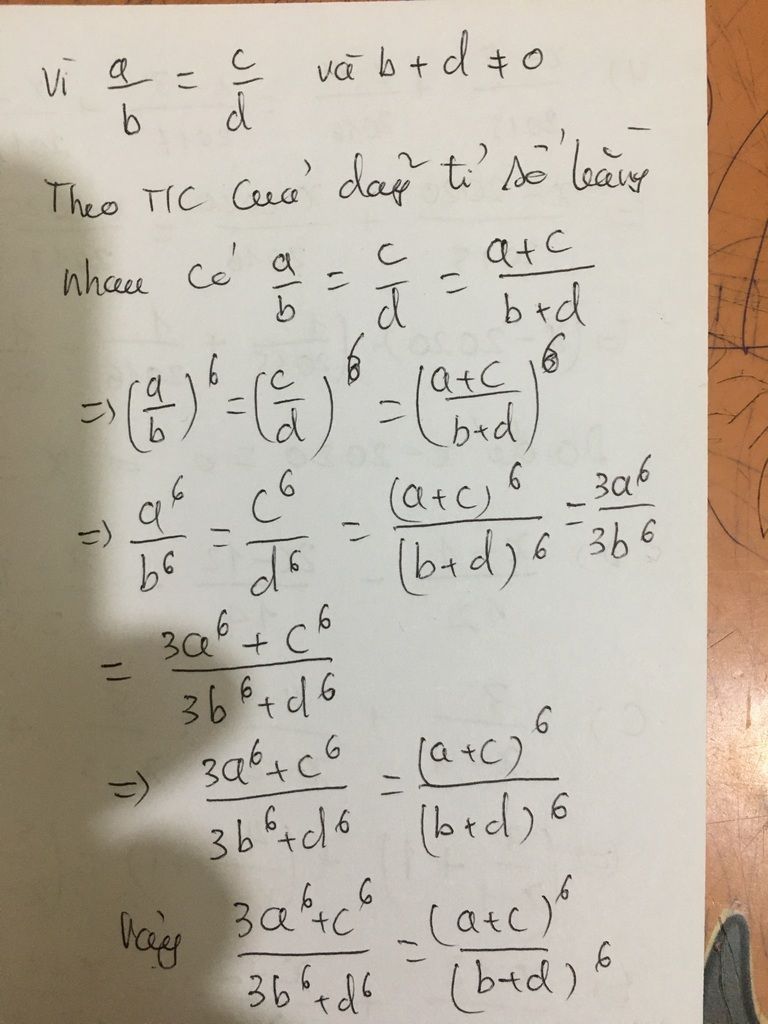 Vì a/b = c/d và b + d ≠ 0
Theo T/C của dãy tỉ số bằng
nhau có a/b = c/d = (a+c)/(b+d)
=> (a/b)^6 = (c/d)^6 = ((a+c)/(b+d))^6
=> a^6/b^6 = c^6/d^6 = (a+c)^6/(b+d)^6 = 3a^6/3b^6
= (3a^6 + c^6)/(3b^6 + d^6)
=> (3a^6 + c^6)/(3b^6 + d^6) = (a+c)^6/(b+d)^6
Vậy (3a^6 + c^6)/(3b^6 + d^6) = (a+c)^6/(b+d)^6